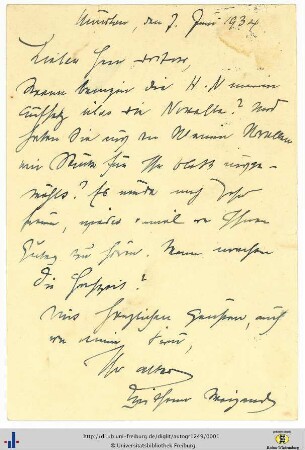 München, den 7. Juni 1934
Lieber Herr Doktor,
Wann bringen die H. N. meinen
Aufsatz über die Novelle? Und
haben Sie aus den
ein Stück für Ihr Blatt ausge-
wählt? Es würde mich sehr
freuen, wieder einmal von Ihnen
zu hören. Wann machen
Sie Hochzeit?
Mit herzlichen Grüßen, auch
von meiner Frau,
Ihr alter
Wilhelm Weigand
http://dl.ub.uni-freiburg.de/diglit/autogr1249/0001
© Universitätsbibliothek Freiburg